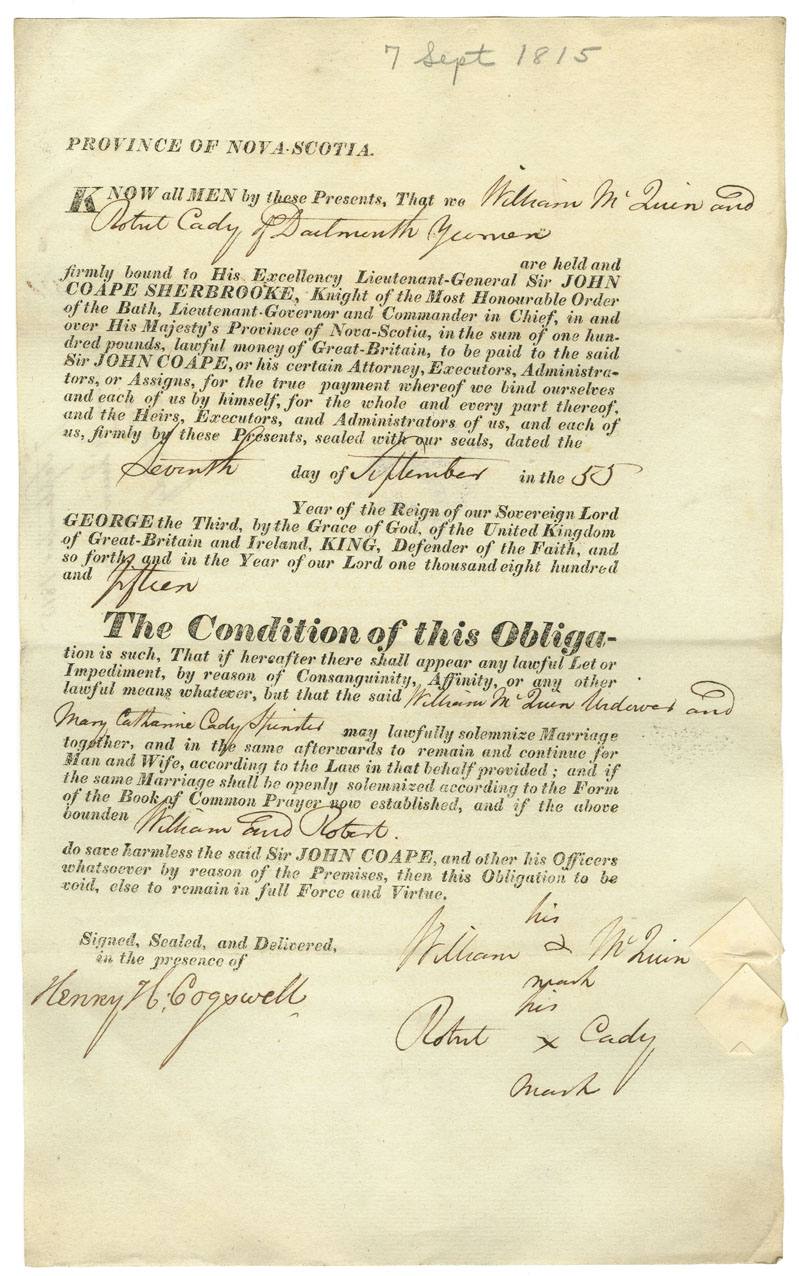 7 Sept 1815
PROVINCE OF NOVA-SCOTIA.
KNOW all MEN by these Presents, That we William Mc Quin and
Robert Cady of Dartmouth Yeomen
are held and
firmly bound to His Excellency Lieutenant-General Sir JOHN
COAPE SHERBROOKE, Knight of the Most Honourable Order
of the Bath, Lieutenant-Governor and Commander in Chief, in and
over His Majesty's Province of Nova-Scotia, in the sum of one hun-
dred pounds, lawful money of Great-Britain, to be paid to the said
Sir JOHN COAPE, or his certain Attorney, Executors, Administra-
tors, or Assigns, for the true payment whereof we bind ourselves
and each of us by himself, for the whole and every part thereof,
and the Heirs, Executors, and Administrators of us, and each of
us, firmly by these Presents, sealed with our seals, dated the
Seventh day of September in the 55
Year of the Reign of our Sovereign Lord
GEORGE the Third, by the Grace of God, of the United Kingdom
of Great-Britain and Ireland, KING, Defender of the Faith, and
so forth, and in the Year of our Lord one thousand eight hundred
and fifteen
The Condition of this Obliga-
tion is such, That if hereafter there shall appear any lawful Let or
Impediment, by reason of Consanguinity, Affinity, or any other
lawful means whatever, but that the said William Mc Quin Widower and
Mary Catharine Cady Spinster may lawfully solemnize Marriage
together, and in the same afterwards to remain and continue for
Man and Wife, according to the Law in that behalf provided; and if
the same Marriage shall be openly solemnized according to the Form
of the Book of Common Prayer now established, and if the above
bounden William and Robert.
do save harmless the said Sir JOHN COAPE, and other his Officers
whatsoever by reason of the Premises, then this Obligation to be
void, else to remain in full Force and Virtue.
Signed, Sealed, and Delivered,
in the presence of
Henry H. Cogswell
his
William x Mc Quin
mark
his
Robert x Cady
mark